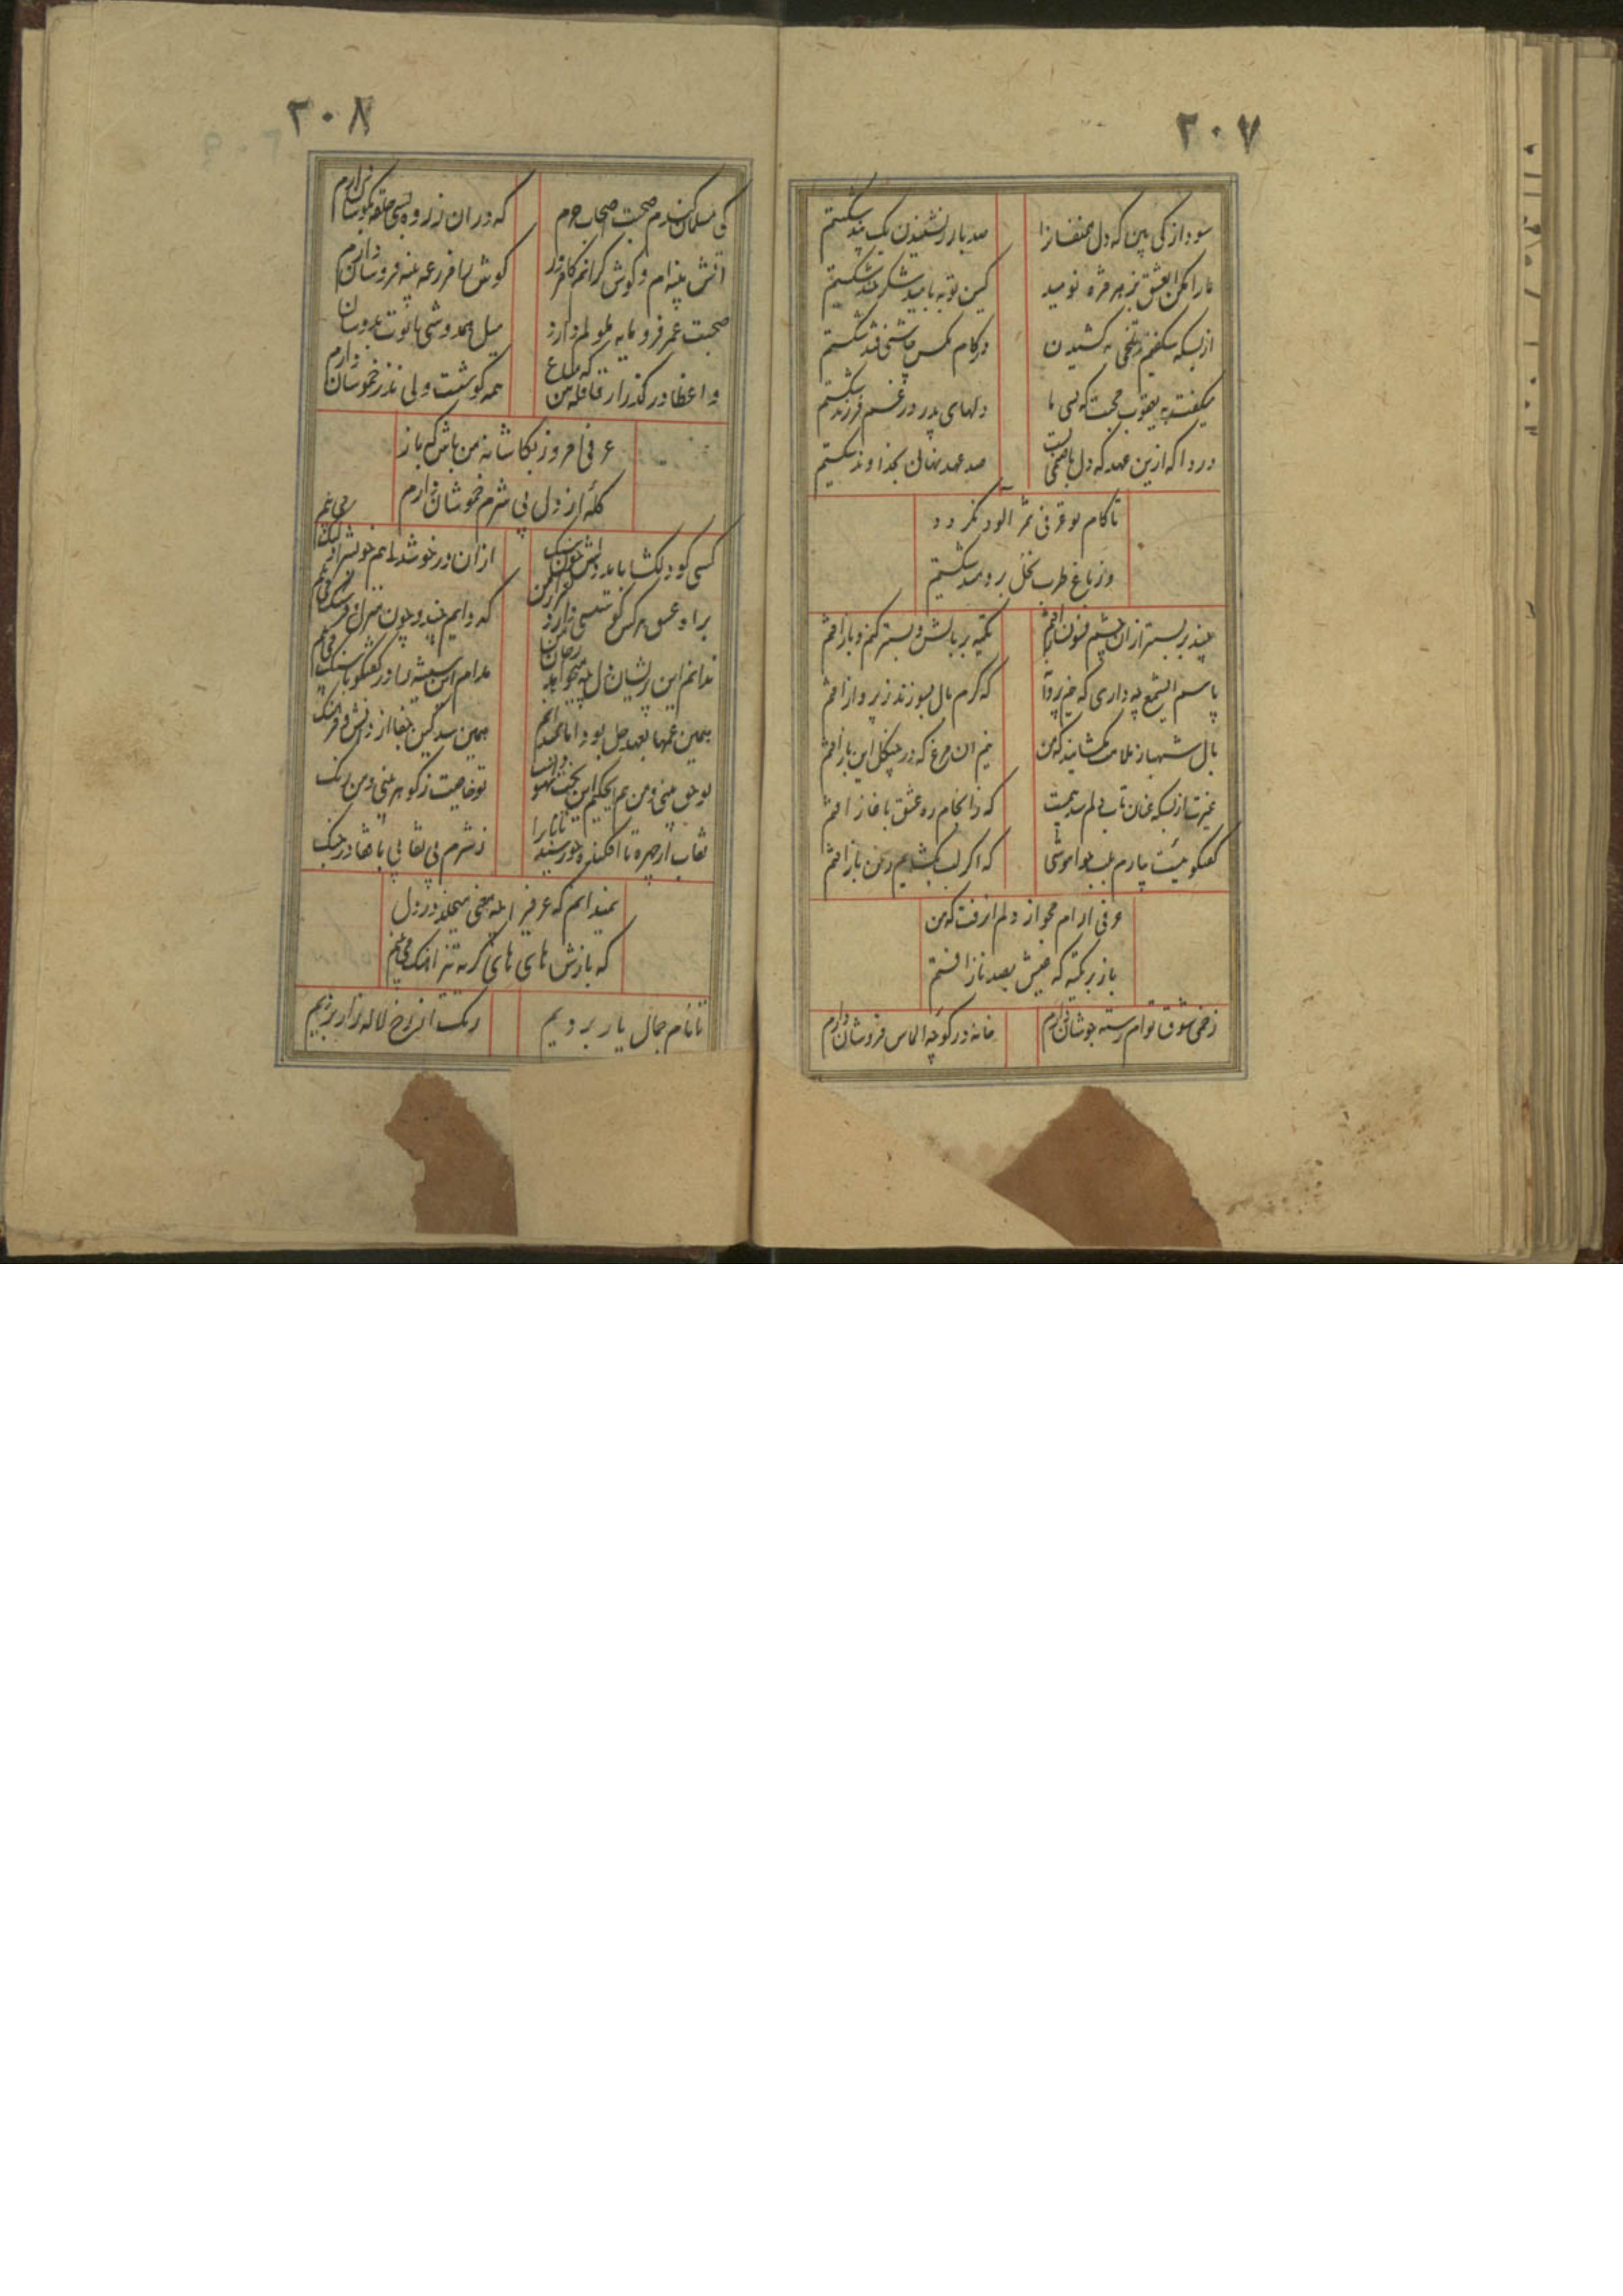 ۲۰۷
سودازدگی بین که دل همنفسانرا
صد بار ز نشنیدن یک پند شکستیم
ما را مکن ای عشق ز هر نومید
کین توبه بامید شکرخند شکستیم
از بسکه شکفتیم بتلخی که شنیدن
در کام مکس چاشنی قند شکستیم
میگفت به یعقوب محبت که بسی ما
دلهای پدر در غم فرزند شکستیم
دردا که ازین عهد که دل با صنمی بست
صد عهد نهان بخداوند شکستیم
تا کام تو عرفی ثمر آلود نگردد
در باغ طرب نخل برومند شکستیم
چند بر بستر از آن چشم فسون ساز افتم
تکیه بر بالش و بستر کنم و باز افتم
پاسم ای شمع چه داری که نیم پروانه
که گرم بال بسوزند ز پرواز افتم
بال شهباز ملامت بگشایند که من
نیم آن مرغ که در چنگل این باز افتم
غیرت از بسکه عنان تاب دلم شد
که ز انجام ره عشق بآغاز افتم
گفتگو نیست چه آرم بلب خاموشی
که اگر لب بگشایم ز سخن باز افتم
عرفی آرام مجو از دلم ارفت که من
باز بر تکیه که عیش بصد ناز افتم
زخمی شوق توام سینه جوشان دارم
خانه در کوچه الماس فروشان دارم
۲۰۸
کی مسلمان کندم صحبت اصحاب حرم
که در آن نرد بسی حلقه بگوشان دارم
آتش پنبه ام و گوش گرانم کافر
گوش را مزرعه پنبه فروشان دارم
صحبت عمر فرومایه ملولم دارد
میل همدوشی تابوت بدوشان دارم
واعظا درگذر از قافله من که متاع
همه گوشست ولی نذر خموشان دارم
عرفی امروز بکاشانه من باش که باز
گله از دل بی شرم خموشان دارم
کسی کو دلگشا باید دلش چون
از آن در خوشدلی هم خویش را دلتنگ می بینم
براه عشق هر کس گو تسلی دارد از من
که دایم چند و چون منزل و فرسنگ می بینم
ندانم این پریشان دل چه میخواهد ز جان من
مدام این شیشه را در گفتگو با سنگ می بینم
همین غمها بعهد جهل بود اما
همین سد کین یغما از دانش و فرهنگ
تو حق بینی و من هم ای حکیم این بحث
تو خاصیت ز گوهر بینی و من رنگ
نقاب از چهره تا افکنده خورشید
ز شرم بی نقابی با نقاب در جنگ
نمیدانم که عرفی را چه معنی میخلد در دل
که بازش های های گریه تیز آهنگ می بینم
تا نام جمال یار بردیم
رنگ از رخ لاله زار بردیم